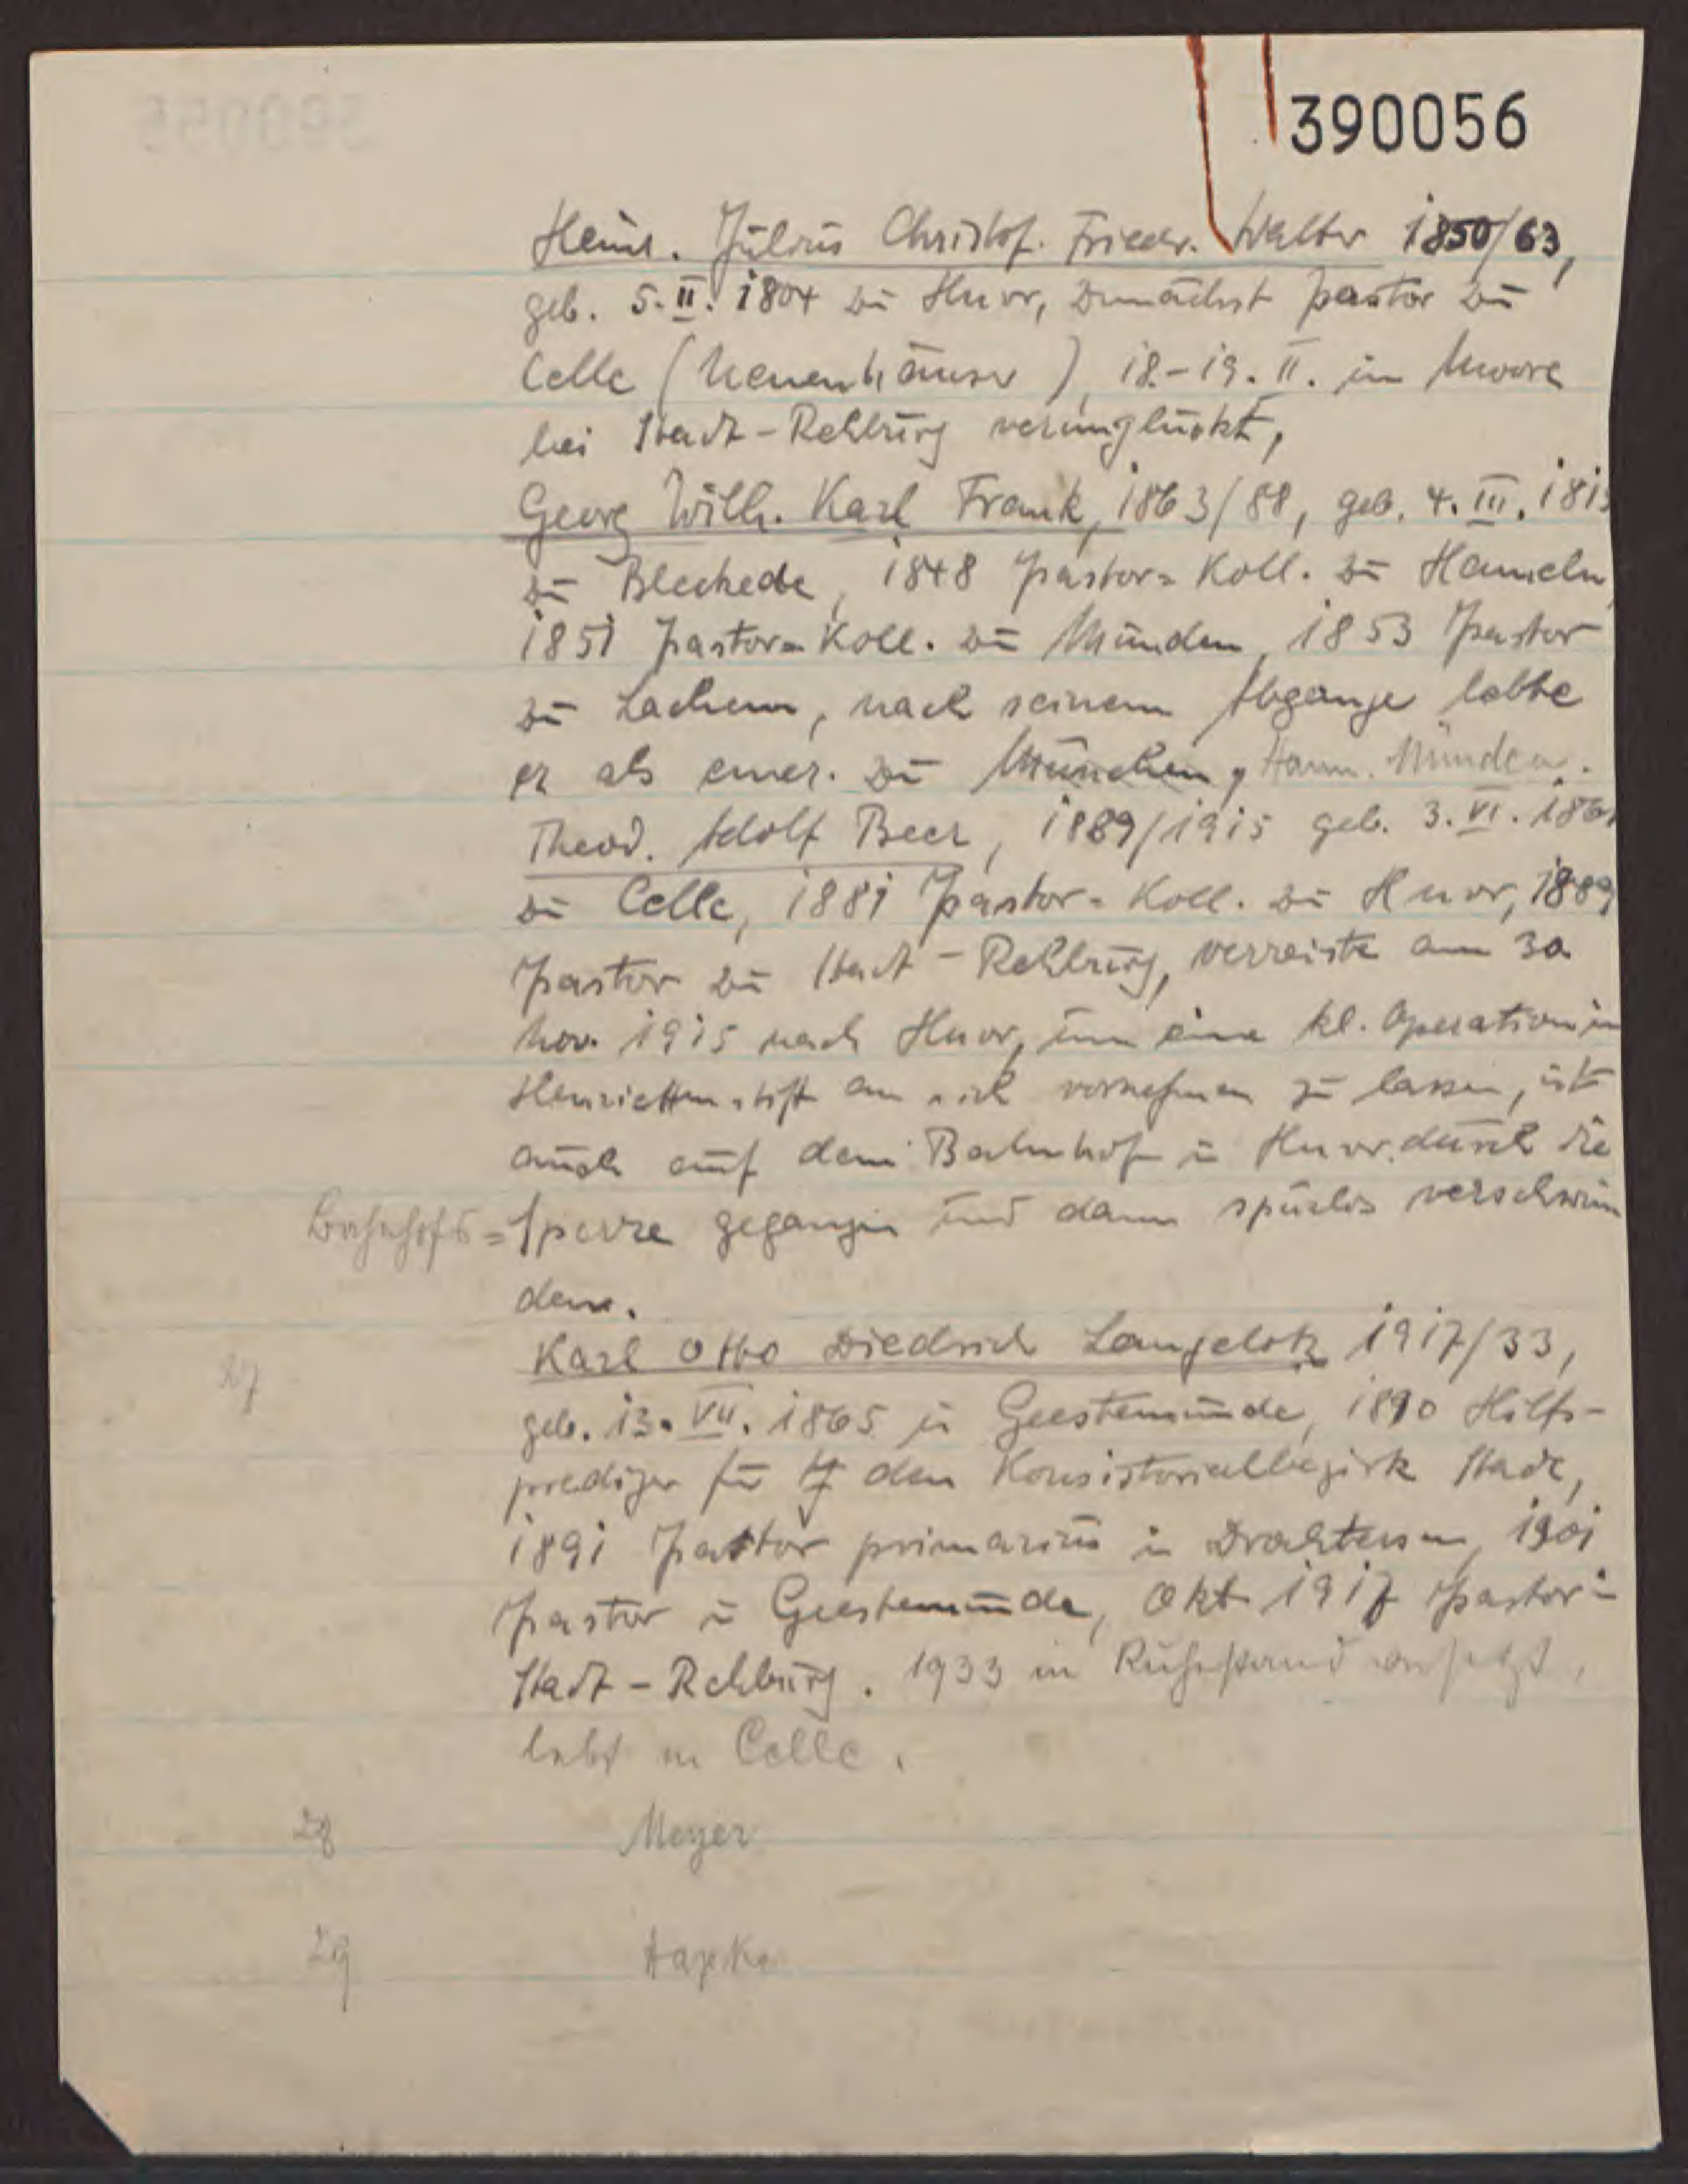 390056
Heinr. Julius Christof. Frieder. Walter 1850/63,
geb. 5. II. 1804 zu Hnvr, zunächst Pastor zu
Celle (Neuenhäuser), 18.-19. II. im Moore
bei Stadt-Rehburg verunglückt,
Georg Wilh. Karl Frank, 1863/88, geb. 4. III. 181
zu Bleckede, 1848 Pastor-Koll. zu Hameln,
1851 Pastor-Koll. zu Münden, 1853 Pastor
zu Lachem, nach seinem Abgange lebte
er als emer. zu München, Hann. Münden.
Theod. Adolf Beer, 1889/1915 geb. 3. VI. 186
zu Celle, 1881 Pastor-Koll. zu Hnvr, 1889
Pastor zu Stadt-Rehburg, verreiste am 30.
Nov. 1915 nach Hnvr, um eine kl. Operation im
Henriettenstift an sich vornehmen zu lassen, ist
auch auf dem Bahnhof in Hnvr. durch die
Bahnhofs=Sperre gegangen und dann spurlos verschwun
den.
27 Karl Otto Diedrich Langelotz 1917/33,
geb. 13. VII. 1865 in Geestemünde, 1890 Hilfs-
prediger für den Konsistorialbezirk Stade,
1891 Pastor primarius in Drochtersen, 1901
Pastor in Geestemünde, Okt. 1917 Pastor in
Stadt-Rehburg. 1933 in Ruhestand versetzt,
lebt in Celle.
28 Meyer
29 Hapke